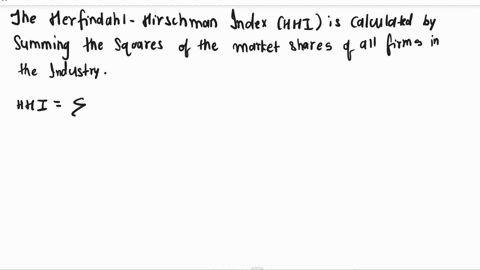 The Herfindahl-Hirschman Index (HHI) is calculated by
Summing the Squares of the market shares of all firms in
the Industry.
HHI = Σ